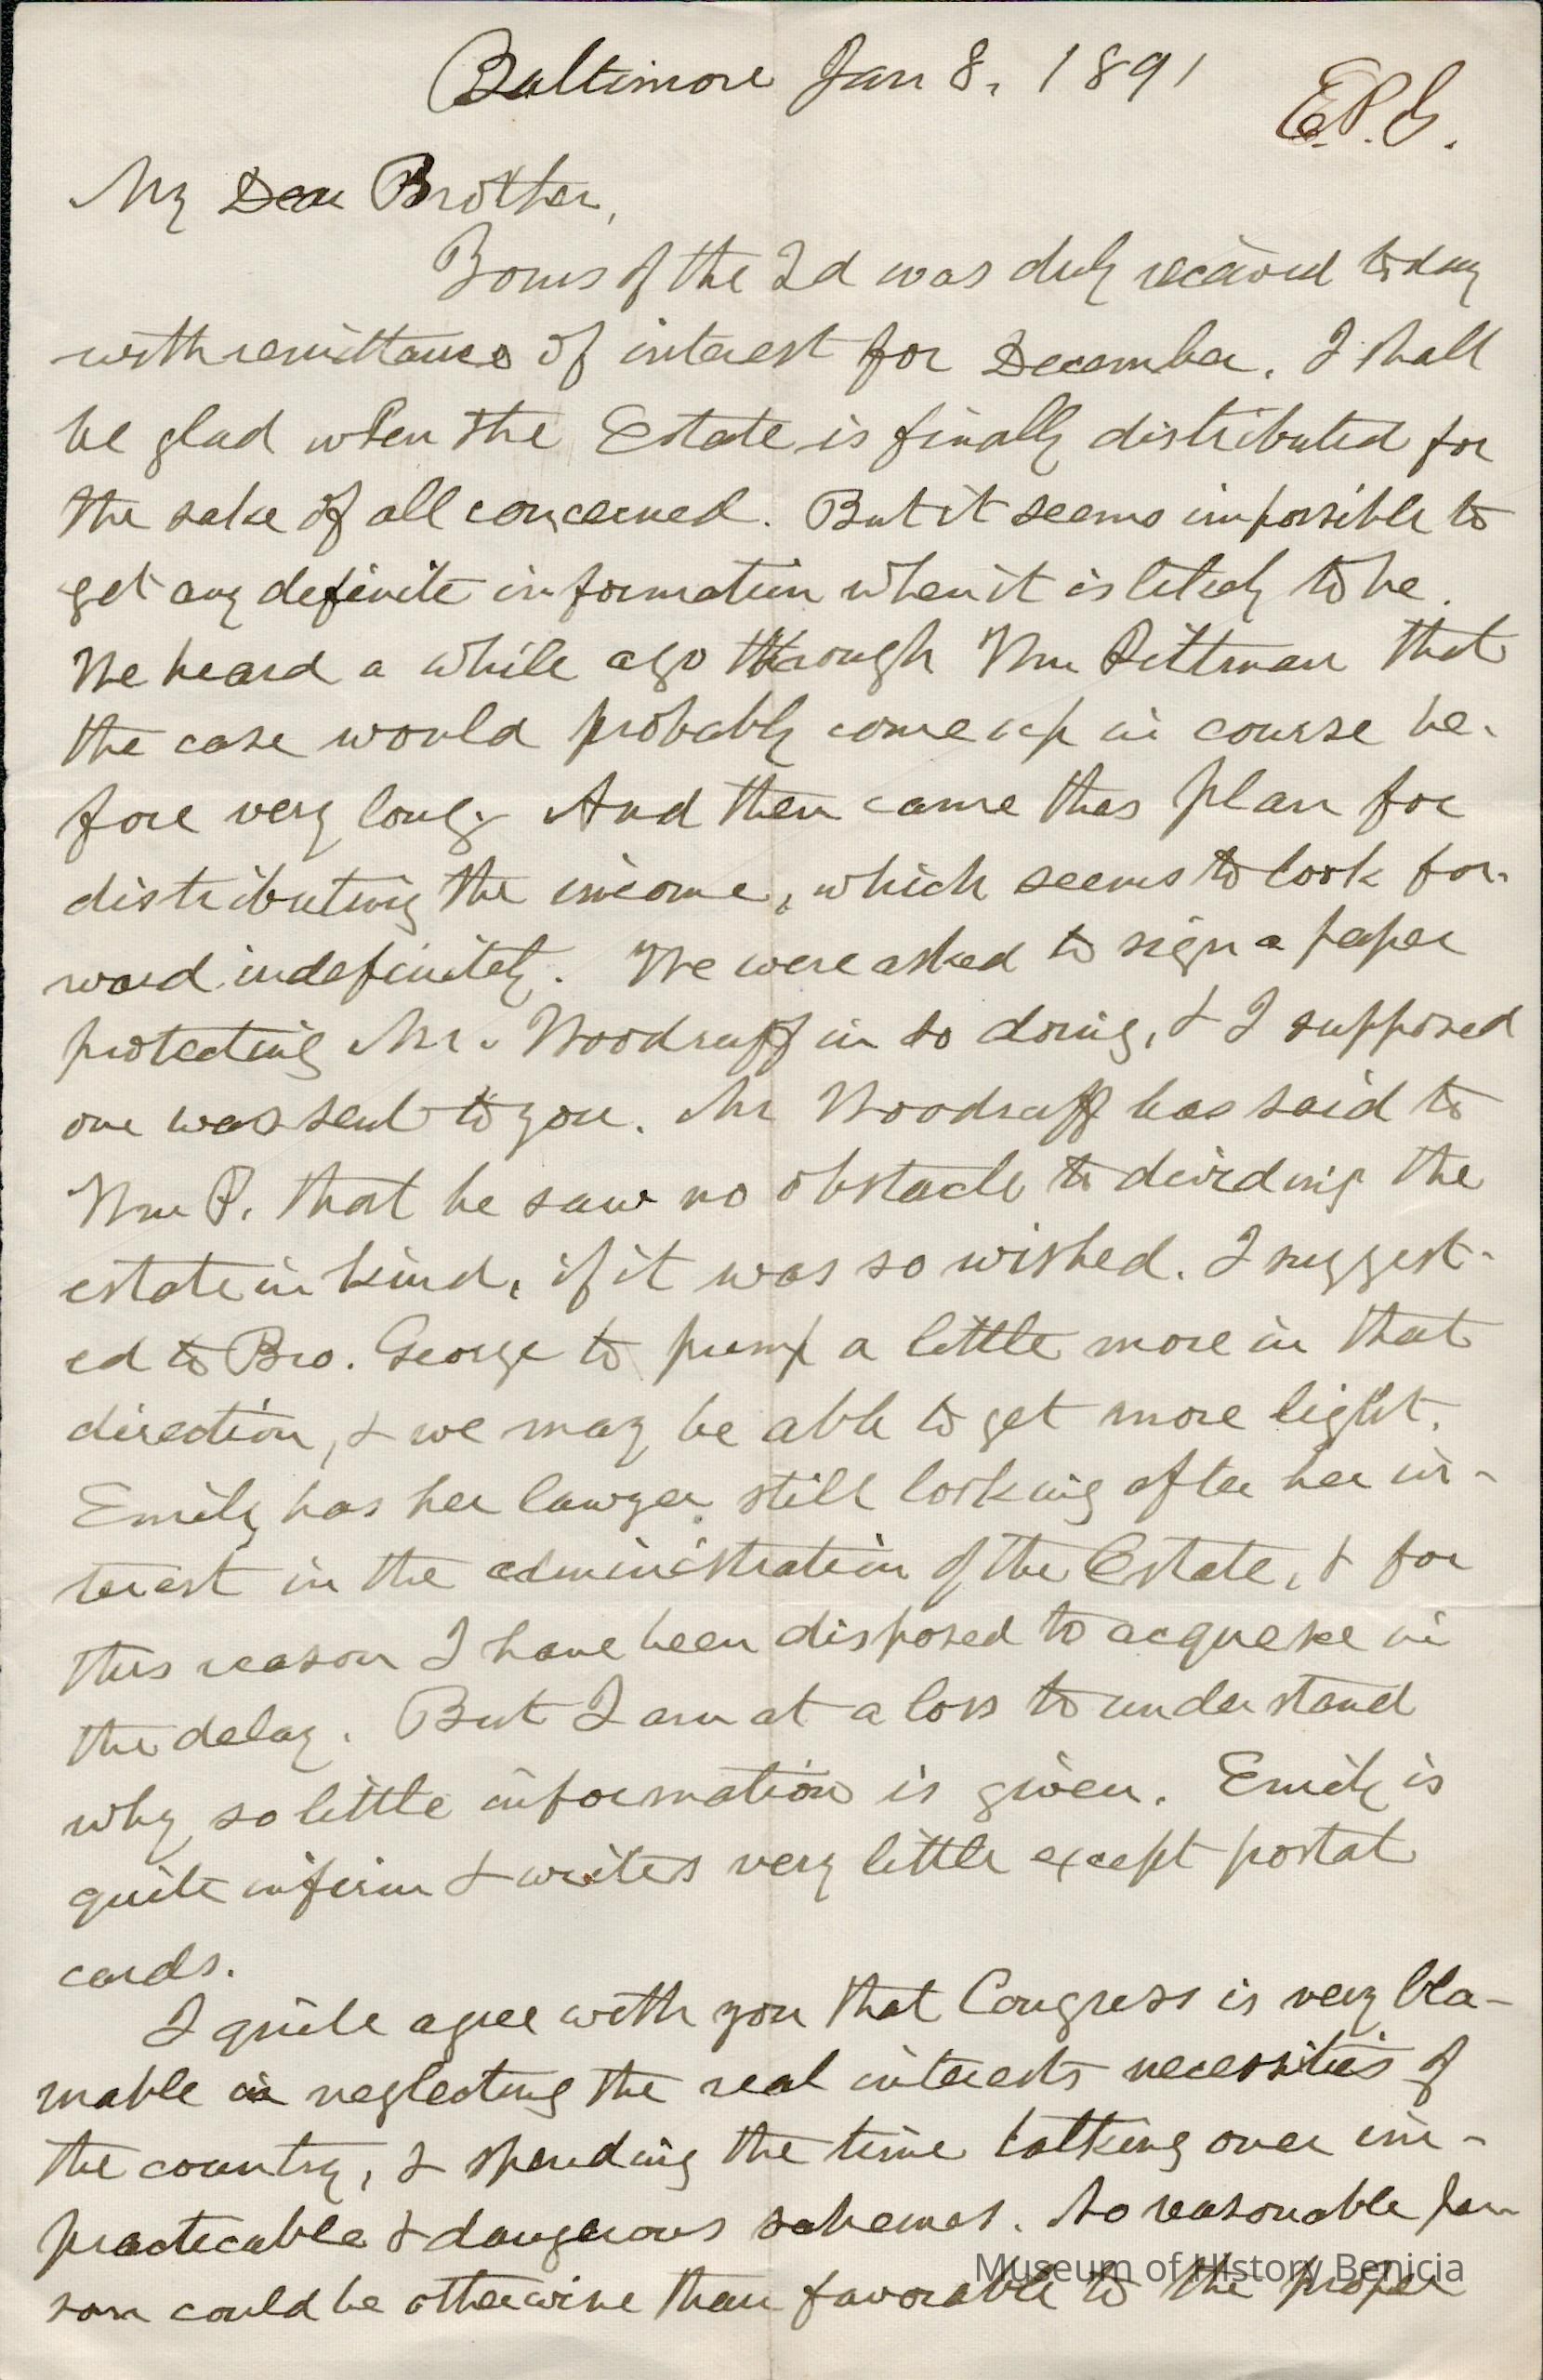 Baltimore Jan 8, 1891
E.P.G.
My Dear Brother,
Yours of the 2d was duly received today
with remittance of interest for December. I shall
be glad when the Estate is finally distributed for
the sake of all concerned. But it seems impossible to
get any definite information when it is likely to be.
We heard a while ago through Wm Pittman that
the case would probably come up in course be-
fore very long. And then came this plan for
distributing the income, which seems to look for-
ward indefinitely. We were asked to sign a paper
protecting Mr. Woodruff in so doing, & I supposed
one was sent to you. Mr Woodruff has said to
Wm P. that he saw no obstacle to dividing the
estate in kind, if it was so wished. I suggest-
ed to Bro. George to pump a little more in that
direction, & we may be able to get more light.
Emily has her lawyer still looking after her in-
terest in the administration of the Estate, & for
this reason I have been disposed to in
the delay. But I am at a loss to understand
why so little information is given. Emily is
quite infirm & writes very little except postal
cards.
I quite agree with you that Congress is very bla-
mable in neglecting the real interests necessities of
the country, & spending the time talking over im-
practicable & dangerous schemes. No reasonable per
son could be otherwise than favorable to the proper
Museum of History Benicia